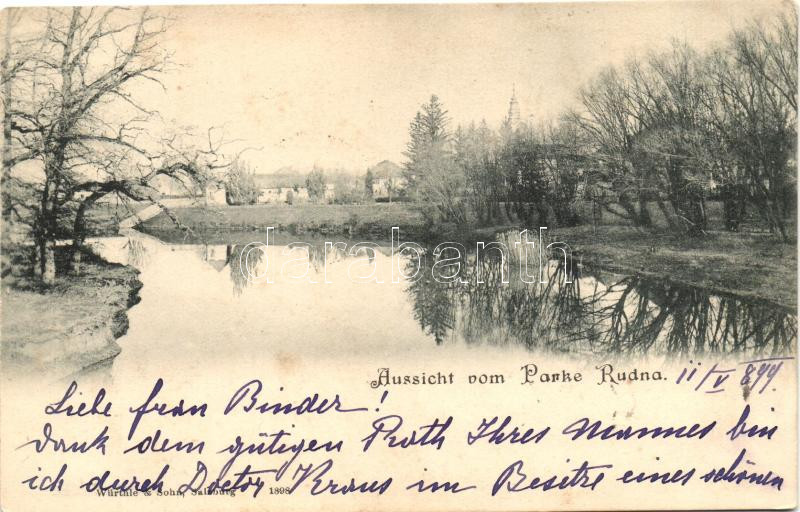 darabanth
Aussicht vom Parke Rudna.
Liebe frau Binder!
Dank dem gütigen Rath Ihres Mannes bin
ich durch Doctor Kraus im Besitze eines schönen
Würthle & Sohn, Salzburg 1898